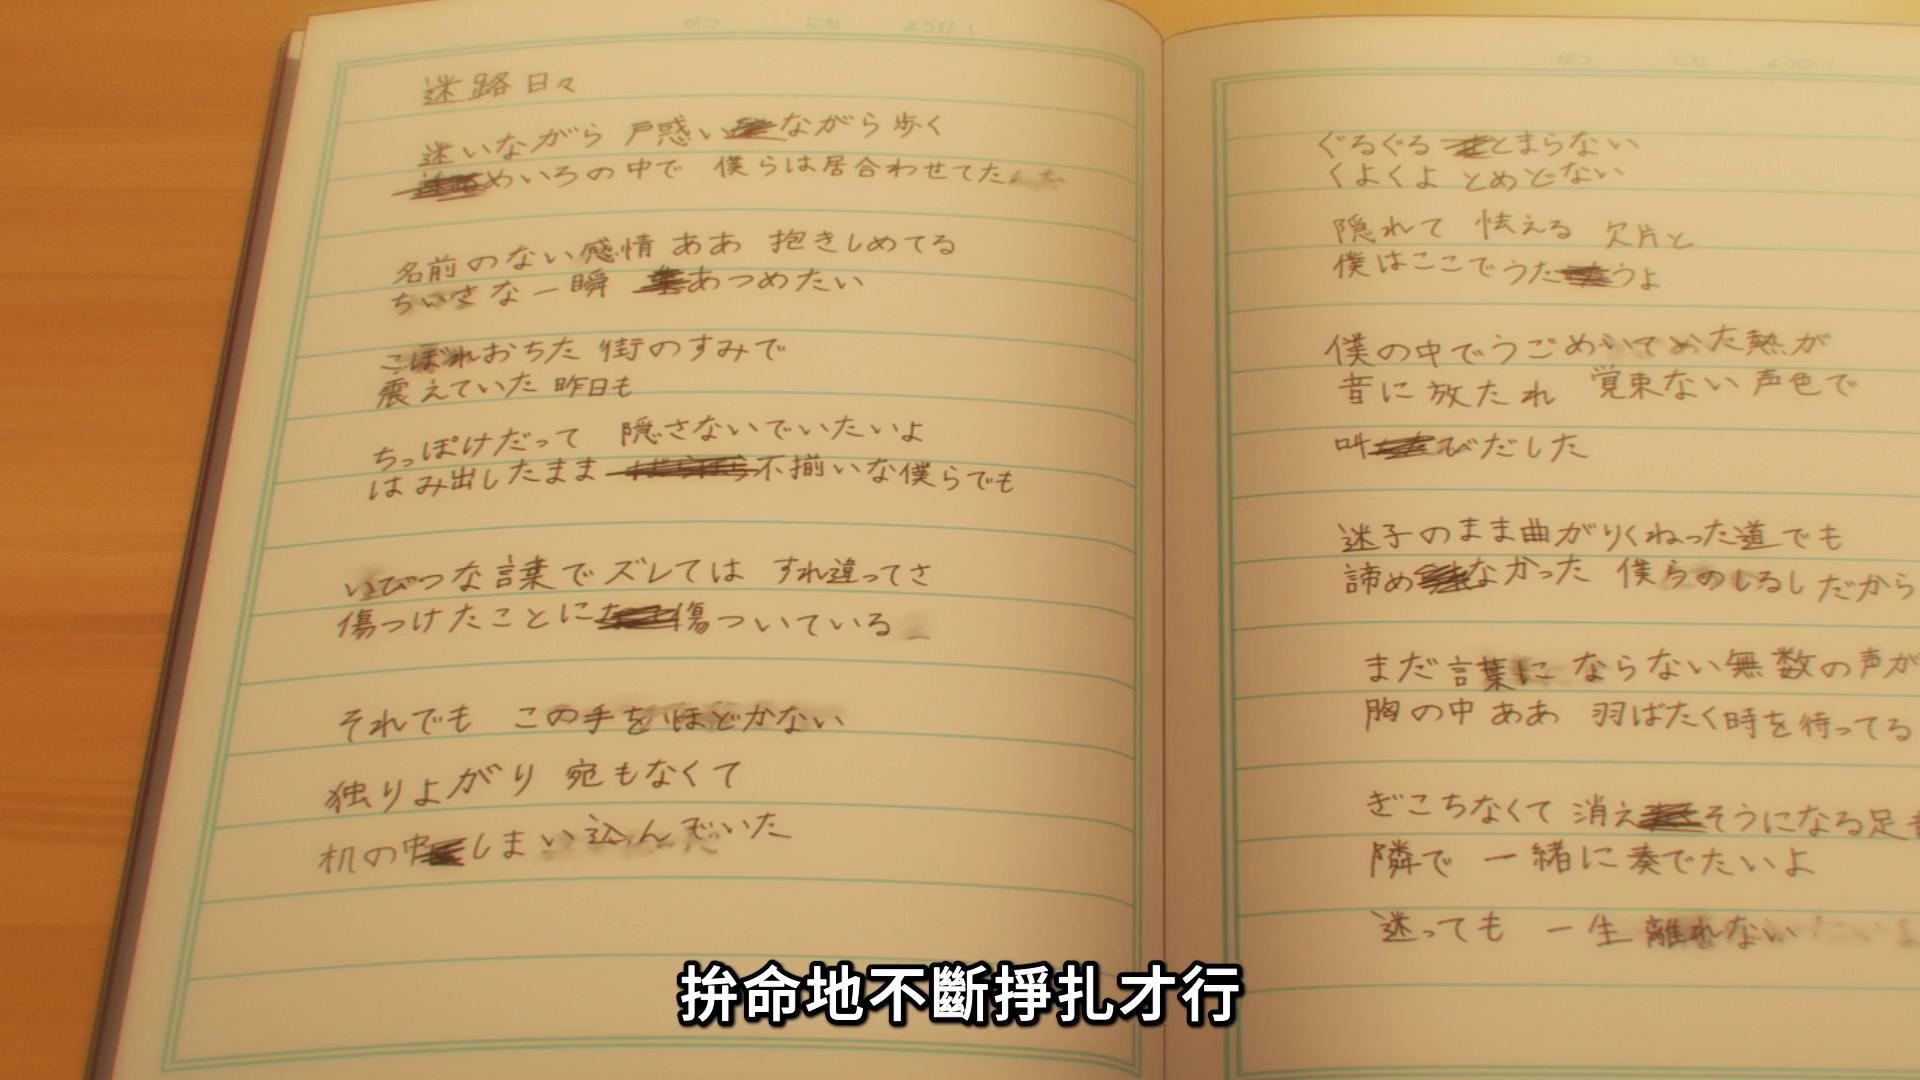 がつ にち ようび
迷路日々
迷いながら 戸惑いながら歩く
めいろの中で 僕らは居合わせてた
名前のない感情 ああ 抱きしめてる
ちいさな一瞬 あつめたい
こぼれおちた 街のすみで
震えていた 昨日も
ちっぽけだって 隠さないでいたいよ
はみ出したまま 不揃いな僕らでも
いびつな言葉でズレては すれ違ってさ
傷つけたことに傷ついている
それでも この手をほどかない
独りよがり 宛もなくて
机の中しまい込んでいた
がつ にち ようび
ぐるぐる とまらない
くよくよ とめどない
隠れて 怯える 欠片と
僕はここでうたうよ
僕の中でうごめいてめた熱が
音に放たれ 覚束ない声色で
叫びだした
迷子のまま曲がりくねった道でも
諦めなかった 僕らのしるしだから
まだ言葉にならない無数の声が
胸の中 ああ 羽ばたく時を待ってる
ぎこちなくて 消えそうになる足
隣で 一緒に奏でたいよ
迷っても 一生 離れない
拚命地不斷掙扎才行